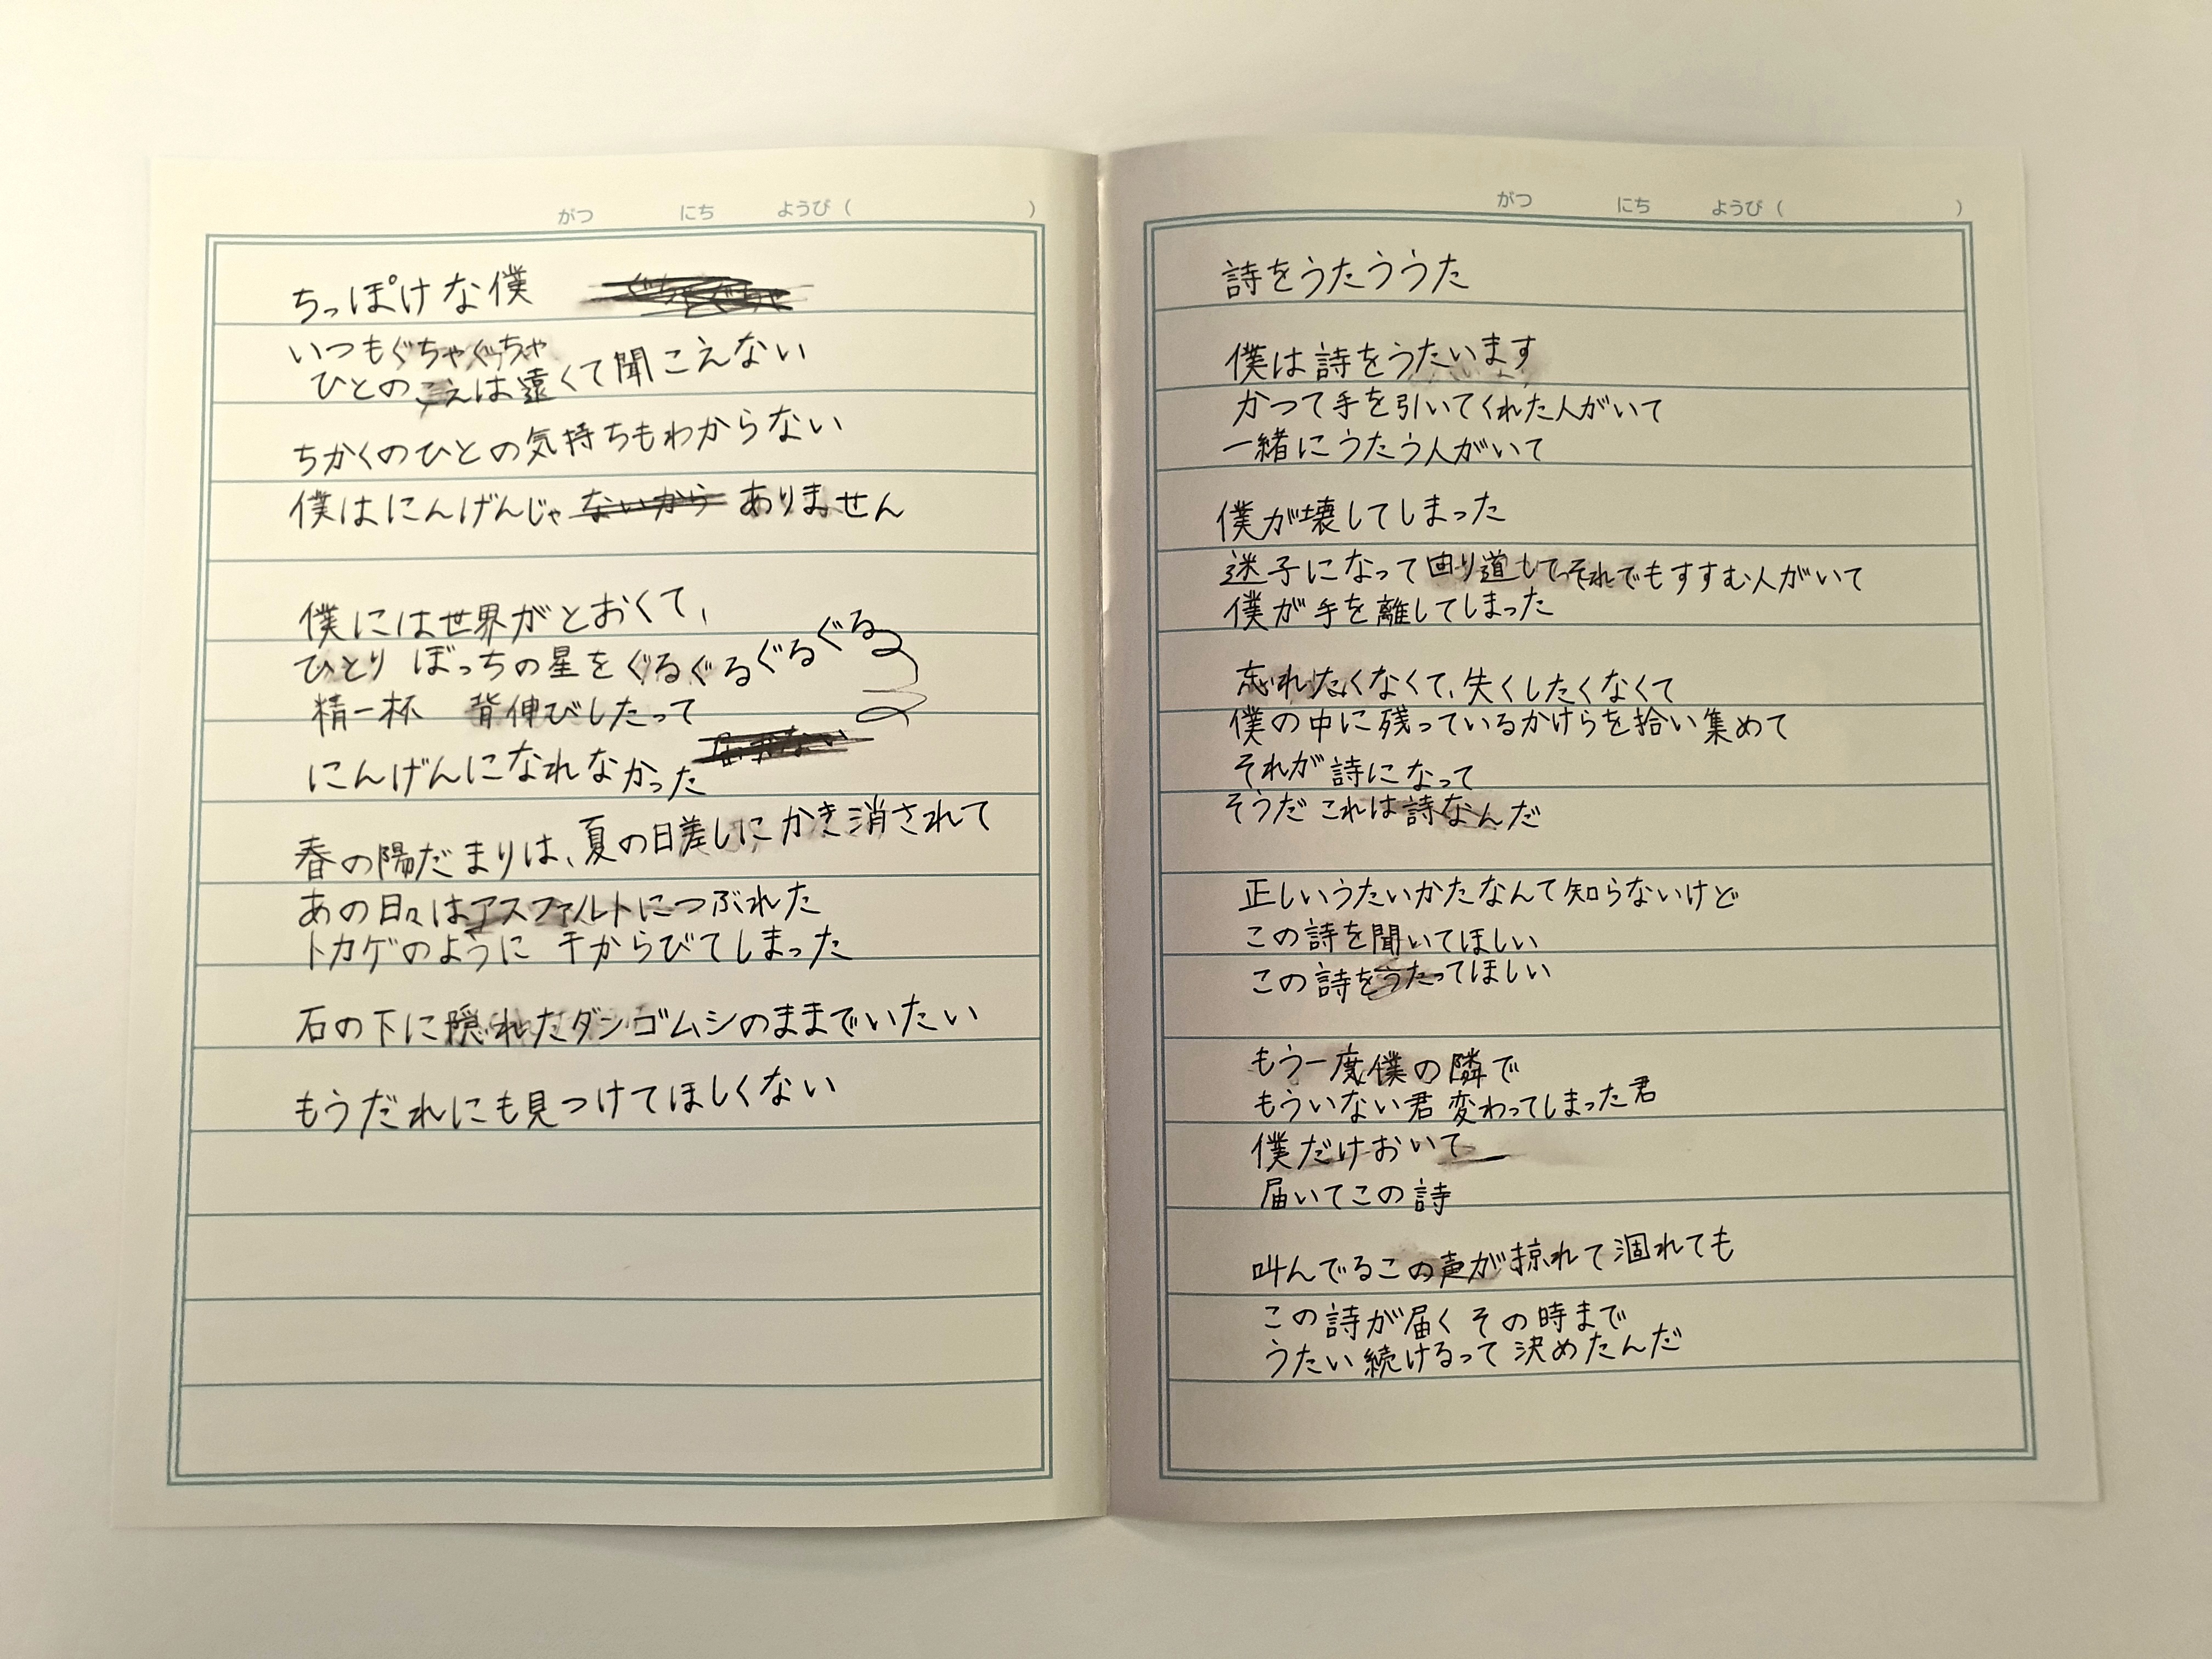 がつ にち ようび ( )
ちっぽけな僕 ぐちゃぐちゃ
いつもぐちゃぐちゃ
ひとのこえは遠くて聞こえない
ちかくのひとの気持ちもわからない
僕はにんげんじゃ ないから ありません
僕には世界がとおくて、
ひとりぼっちの星をぐるぐるぐるぐる
精一杯 背伸びしたって
にんげんになれなかった 届かない
春の陽だまりは、夏の日差しにかき消されて
あの日々はアスファルトにつぶれた
トカゲのように 干からびてしまった
石の下に隠れたダンゴムシのままでいたい
もうだれにも見つけてほしくない
がつ にち ようび ( )
詩をうたううた
僕は詩をうたいます
かつて手を引いてくれた人がいて
一緒にうたう人がいて
僕が壊してしまった
迷子になって回り道してそれでもすすむ人がいて
僕が手を離してしまった
忘れたくなくて、失くしたくなくて
僕の中に残っているかけらを拾い集めて
それが詩になって
そうだ これは詩なんだ
正しいうたいかたなんて知らないけど
この詩を聞いてほしい
この詩をうたってほしい
もう一度僕の隣で
もういない君 変わってしまった君
僕だけおいて
届いてこの詩
叫んでるこの声が掠れて涸れても
この詩が届く その時まで
うたい続けるって 決めたんだ